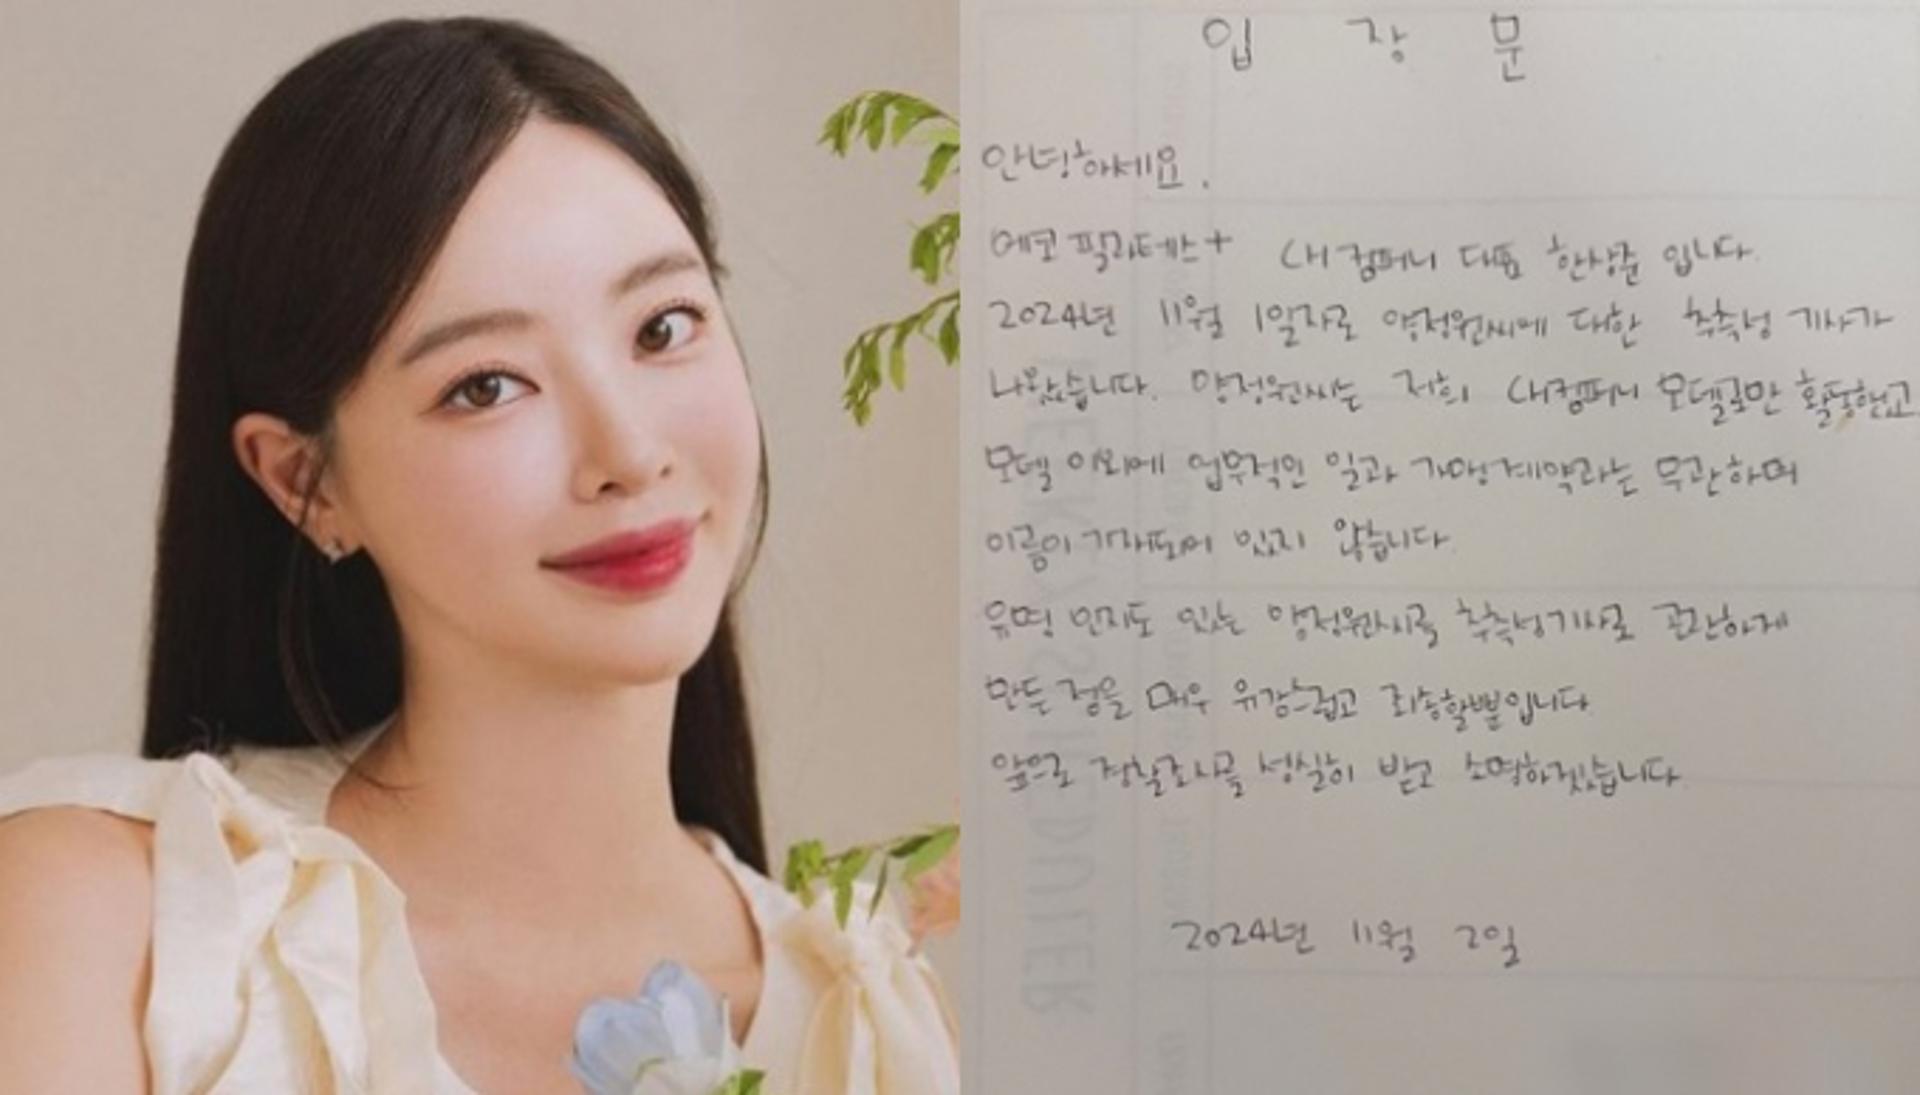 입 장 문
안녕하세요.
에코필라테스+ CH컴퍼니 대표 한상준 입니다.
2024년 11월 1일자로 양정원씨에 대한 추측성 기사가
나왔습니다. 양정원씨는 저희 CH컴퍼니 모델로만 활동했고
모델 이외에 업무적인 일과 가맹계약과는 무관하며
이름이 기재되어 있지 않습니다.
유명 인지도 있는 양정원씨를 추측성기사로 곤란하게
만든 점을 매우 유감스럽고 죄송할뿐입니다
앞으로 경찰조사를 성실히 받고 소명하겠습니다.
2024년 11월 2일